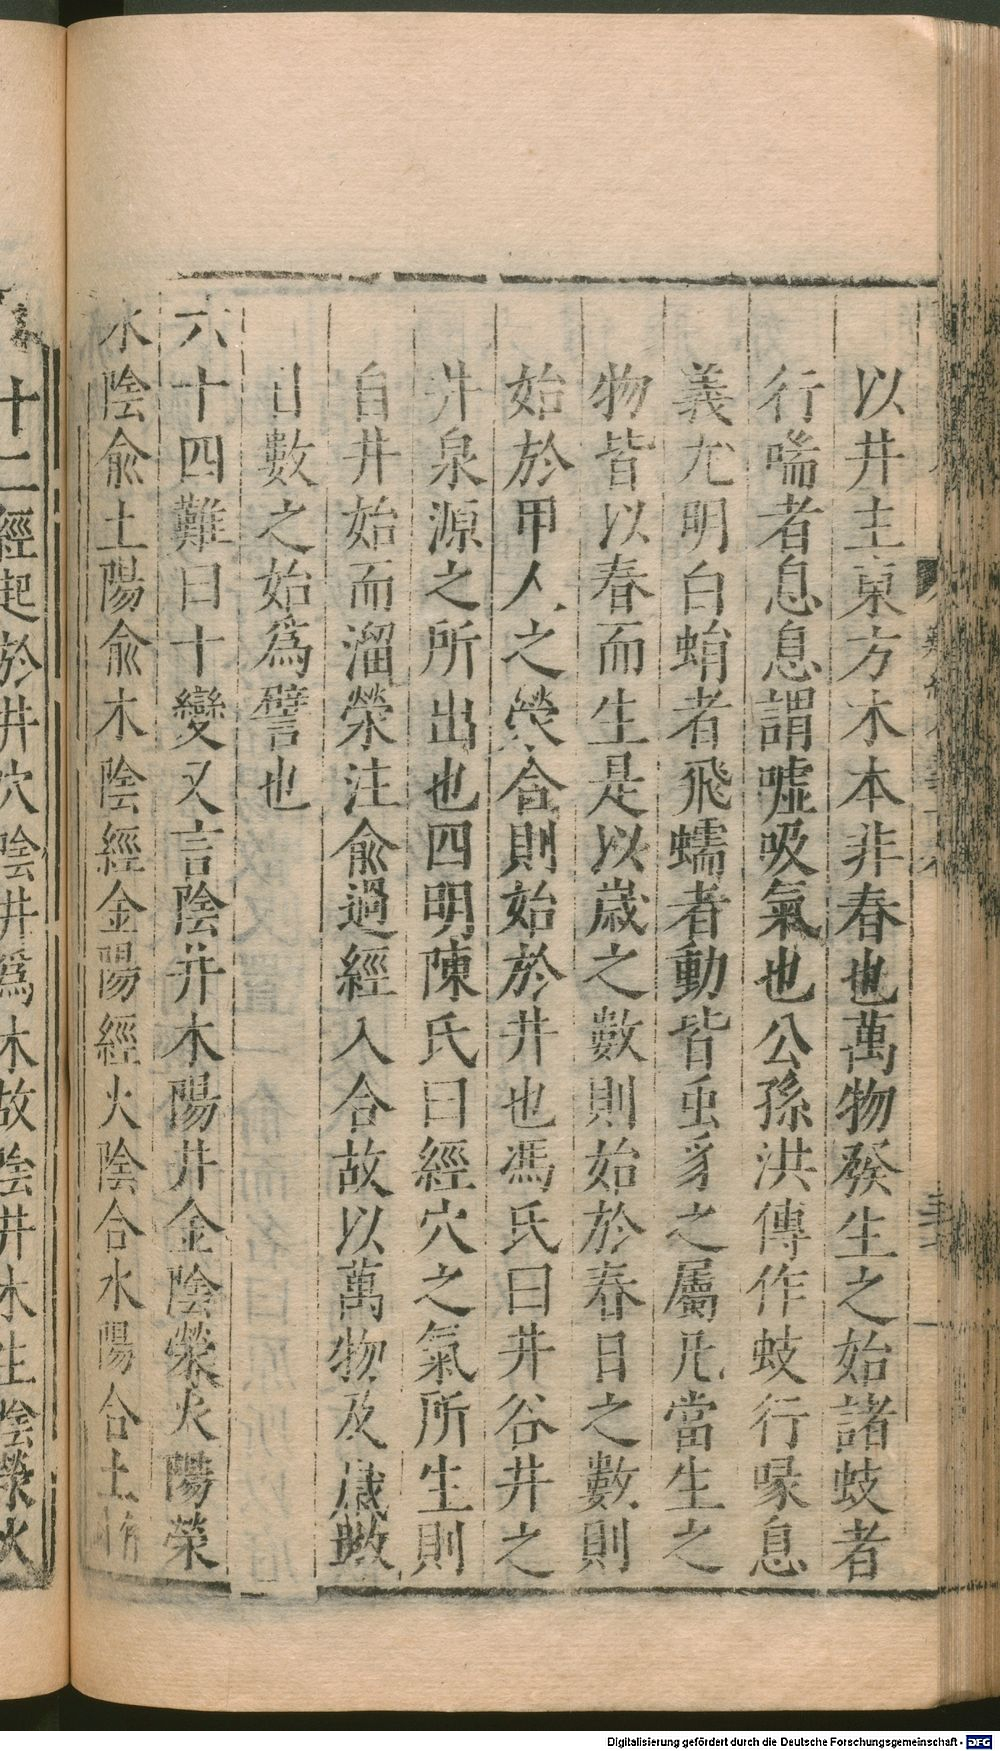 以井主東方木木非春也萬物發生之始諸蚑者
行喘者息息謂噓吸氣也公孫洪傳作蚑行喙息
義尤明白蛸者飛蠕者動皆虫豸之屬凡當生之
物皆以春而生是以歲之數則始於春日之數則
始於甲人之滎合則始於井也馮氏曰井谷井之
井泉源之所出也四明陳氏曰經穴之氣所生則
自井始而溜滎注俞過經入合故以萬物及歲數
日數之始爲譬也
六十四難曰十變又言陰井木陽井金陰滎火陽滎
水陰俞土陽俞木陰經金陽經火陰合水陽合土
十二經起於井穴陰井爲木故陰井木生陰滎火
Digitalisierung gefördert durch die Deutsche Forschungsgemeinschaft - DFG